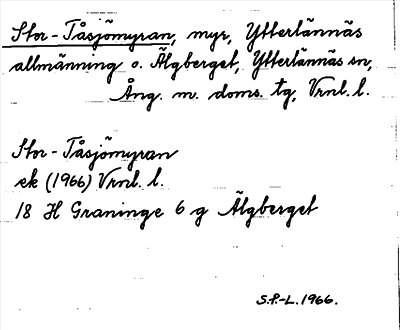 Stor-Tåsjömyran, myr, Ytterlännäs
allmänning o. Älgberget, Ytterlännäs sn,
Ång. m. doms. tg, Vrnl. l.
Stor-Tåsjömyran
ek (1966) Vrnl. l.
18 H Graninge 6 g Älgberget
S.P.-L. 1966.